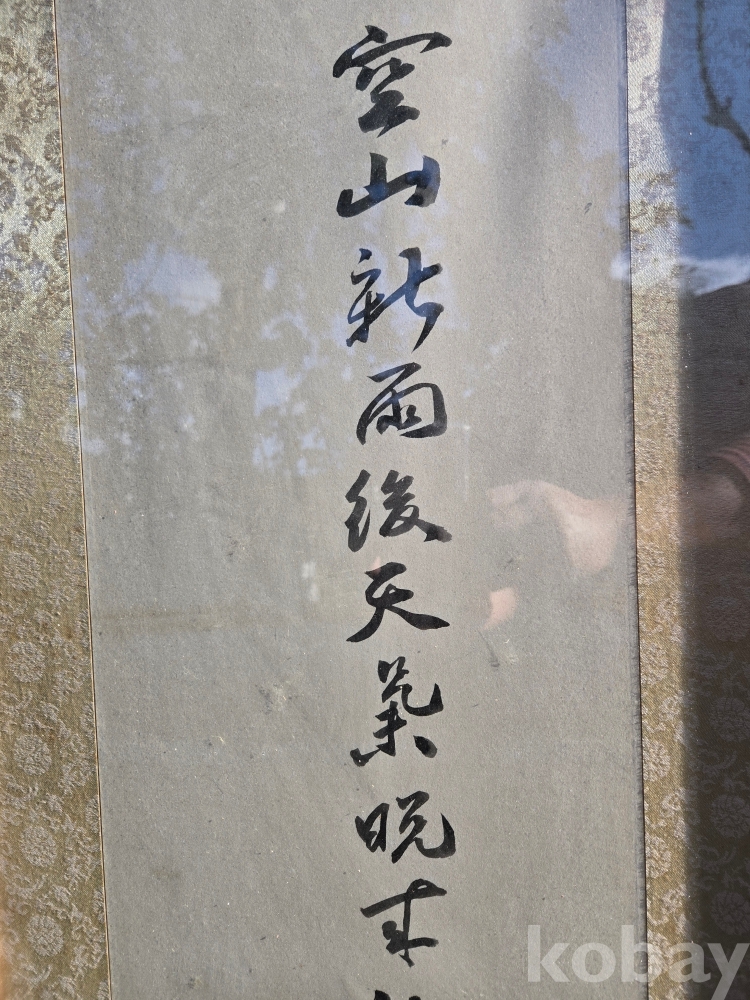 空山新雨後天氣晩来
kobay